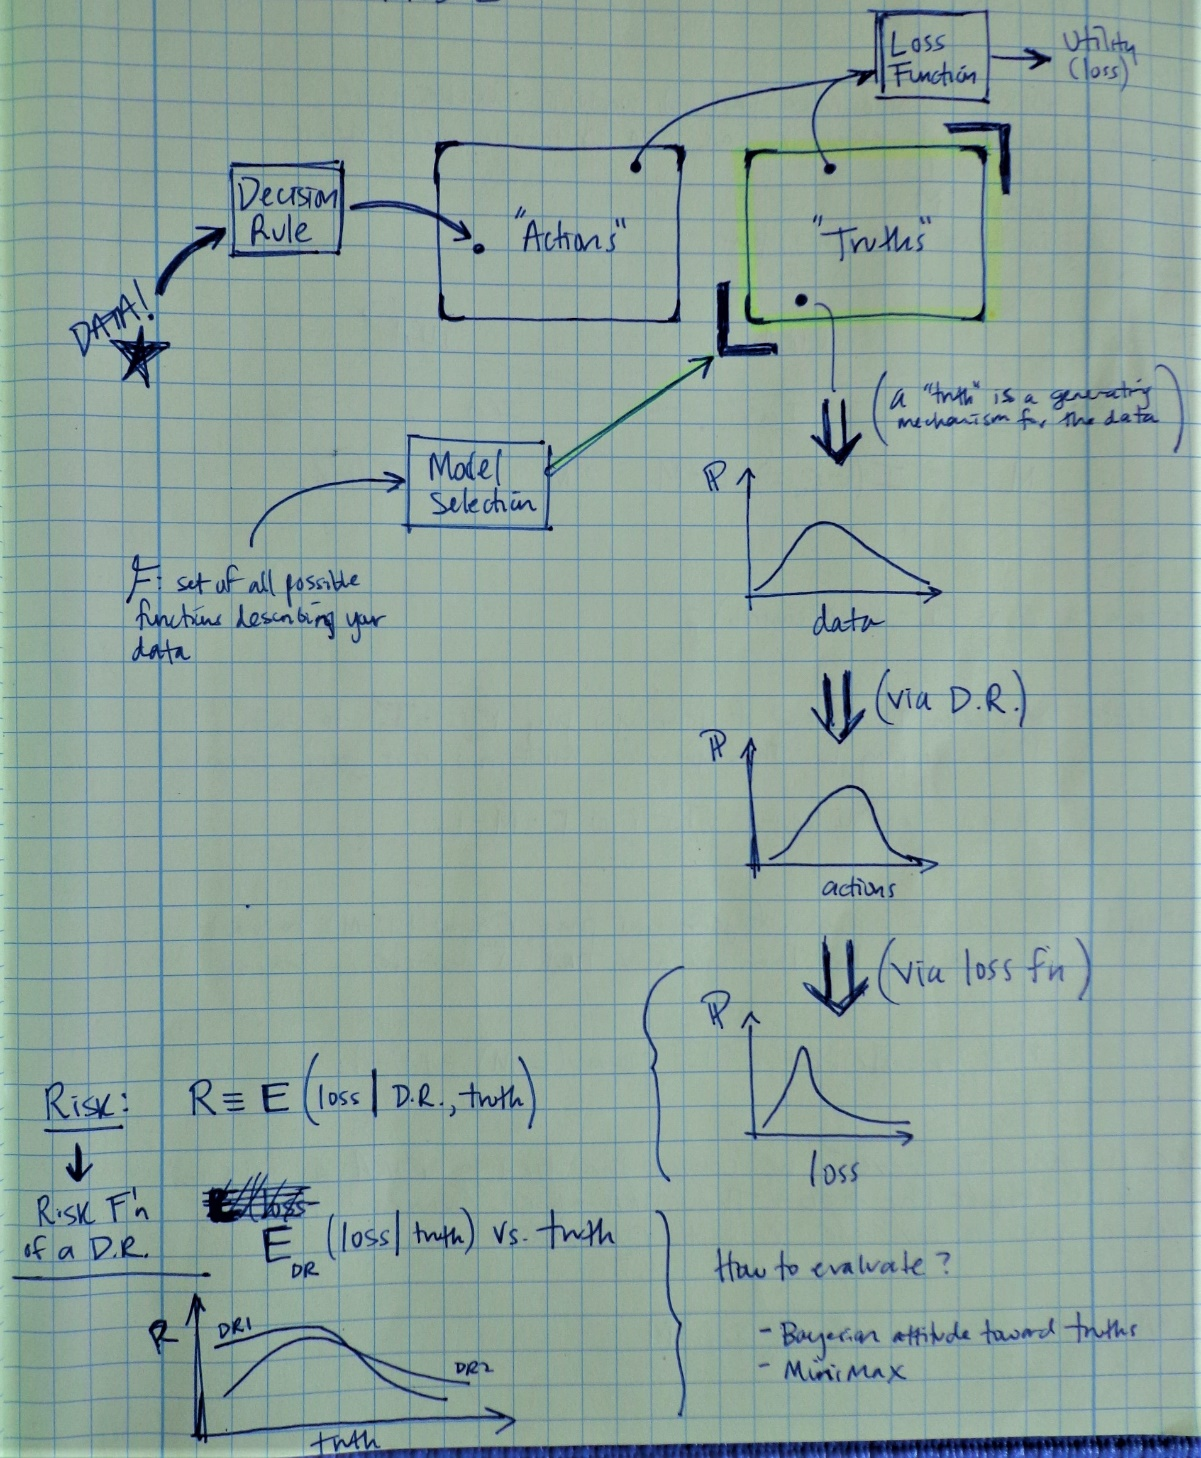 Loss
Function
Utility
(loss)
Decision
Rule
"Actions"
"Truths"
DATA!
(a "truth" is a generating
mechanism for the data)
Model
Selection
F: set of all possible
functions describing your
data
ℙ
data
(via D.R.)
ℙ
actions
(via loss fn)
ℙ
loss
Risk: R ≡ E (loss | D.R., truth)
Risk F'n
of a D.R.
E_DR (loss | truth) vs. truth
R
DR1
DR2
truth
How to evaluate?
- Bayesian attitude toward truths
- Minimax